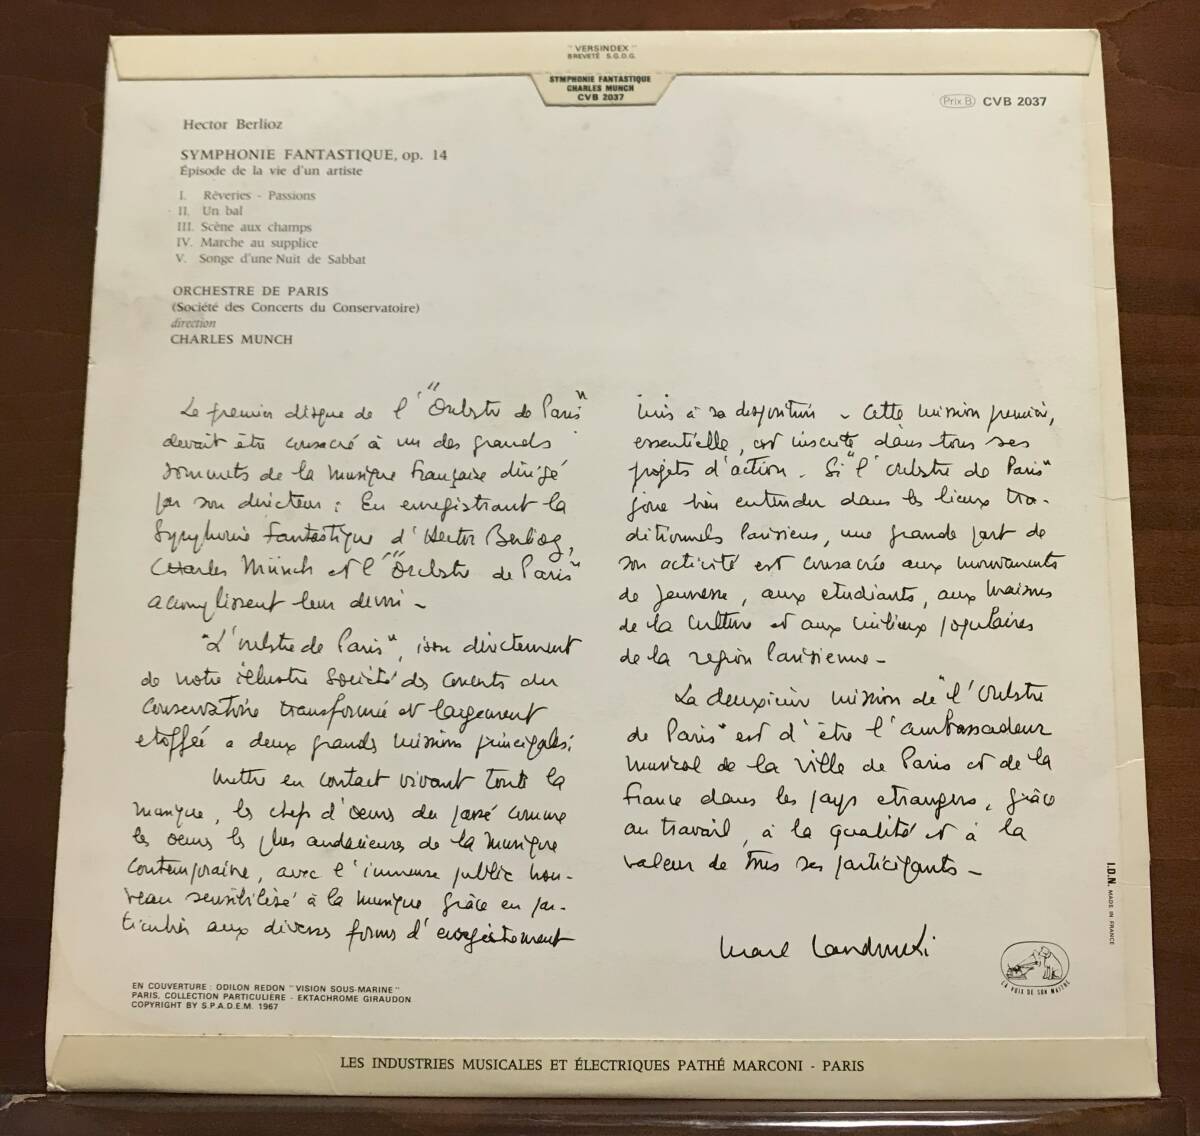 "VERSINDEX"
BREVETÉ S.G.D.G.
SYMPHONIE FANTASTIQUE
CHARLES MUNCH
CVB 2037
Prix B CVB 2037
Hector Berlioz
SYMPHONIE FANTASTIQUE, op. 14
Épisode de la vie d'un artiste
I. Rêveries - Passions
II. Un bal
III. Scène aux champs
IV. Marche au supplice
V. Songe d'une Nuit de Sabbat
ORCHESTRE DE PARIS
(Société des Concerts du Conservatoire)
direction
CHARLES MUNCH
Le premier disque de l'"Orchestre de Paris"
devait être consacré à un des grands
sommets de la musique française dirigé
par son directeur : En enregistrant la
Symphonie Fantastique d'Hector Berlioz,
Charles Münch et l'"Orchestre de Paris"
accomplissent leur devoir -
"L'orchestre de Paris", issu directement
de notre illustre Société des concerts du
Conservatoire transformée et largement
etoffée a deux grandes missions principales :
mettre en contact vivant toute la
musique, les chefs d'oeuvres du passé comme
les oeuvres les plus audacieuses de la musique
contemporaine, avec l'immense public nou-
veau sensibilisé à la musique grâce en par-
ticulier aux diverses formes d'enregistrement
mis à sa disposition - Cette mission première,
essentielle, est inscrite dans tous ses
projets d'action - Si "l'orchestre de Paris"
joue bien entendu dans les lieux tra-
ditionnels Parisiens, une grande part de
son activité est consacrée aux mouvements
de jeunesse, aux etudiants, aux maisons
de la culture et aux milieux populaires
de la region Parisienne -
La deuxième mission de "l'Orchestre
de Paris" est d'être l'ambassadeur
musical de la ville de Paris et de la
France dans les pays etrangers, grâce
au travail, à la qualité et à la
valeur de tous ses participants -
Marcel Landowski
EN COUVERTURE : ODILON REDON "VISION SOUS-MARINE"
PARIS, COLLECTION PARTICULIERE - EKTACHROME GIRAUDON
COPYRIGHT BY S.P.A.D.E.M. 1967
LA VOIX DE SON MAITRE
I.D.N. MADE IN FRANCE
LES INDUSTRIES MUSICALES ET ÉLECTRIQUES PATHÉ MARCONI - PARIS